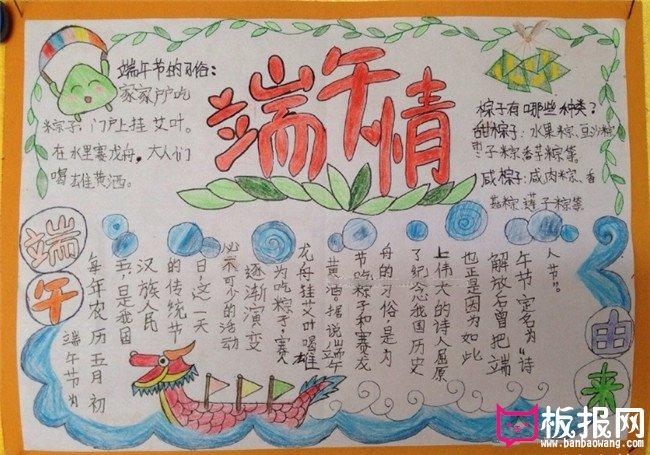 端午节的习俗：
家家户户吃
粽子，门户上挂艾叶。
在水里赛龙舟，大人们
喝雄黄酒。
端午情
粽子有哪些种类？
甜粽子：水果粽、豆沙粽
枣子粽、香芋粽等。
咸粽子：咸肉粽、香
菇粽、莲子粽等。
端午
由来
端午节为
每年农历五月初
五，是我国
汉族人民
的传统节
日，这一天
必不可少的活动
逐渐演变
为吃粽子，赛
龙舟挂艾叶喝雄
黄酒。据说端午
节吃粽子和赛龙
舟的习俗是为
了纪念我国历史
上伟大的诗人屈原
也正是因为如此
解放后曾把端
午节定名为“诗
人节”。
板报网
www.banbaowang.com